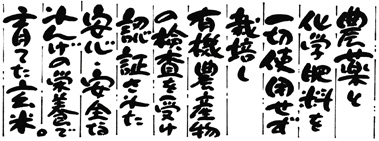 農薬と
化学肥料を
一切使用せず
栽培し
有機農産物
の検査を受け
認証された
安心・安全な
れんげの栄養で
育てた玄米。